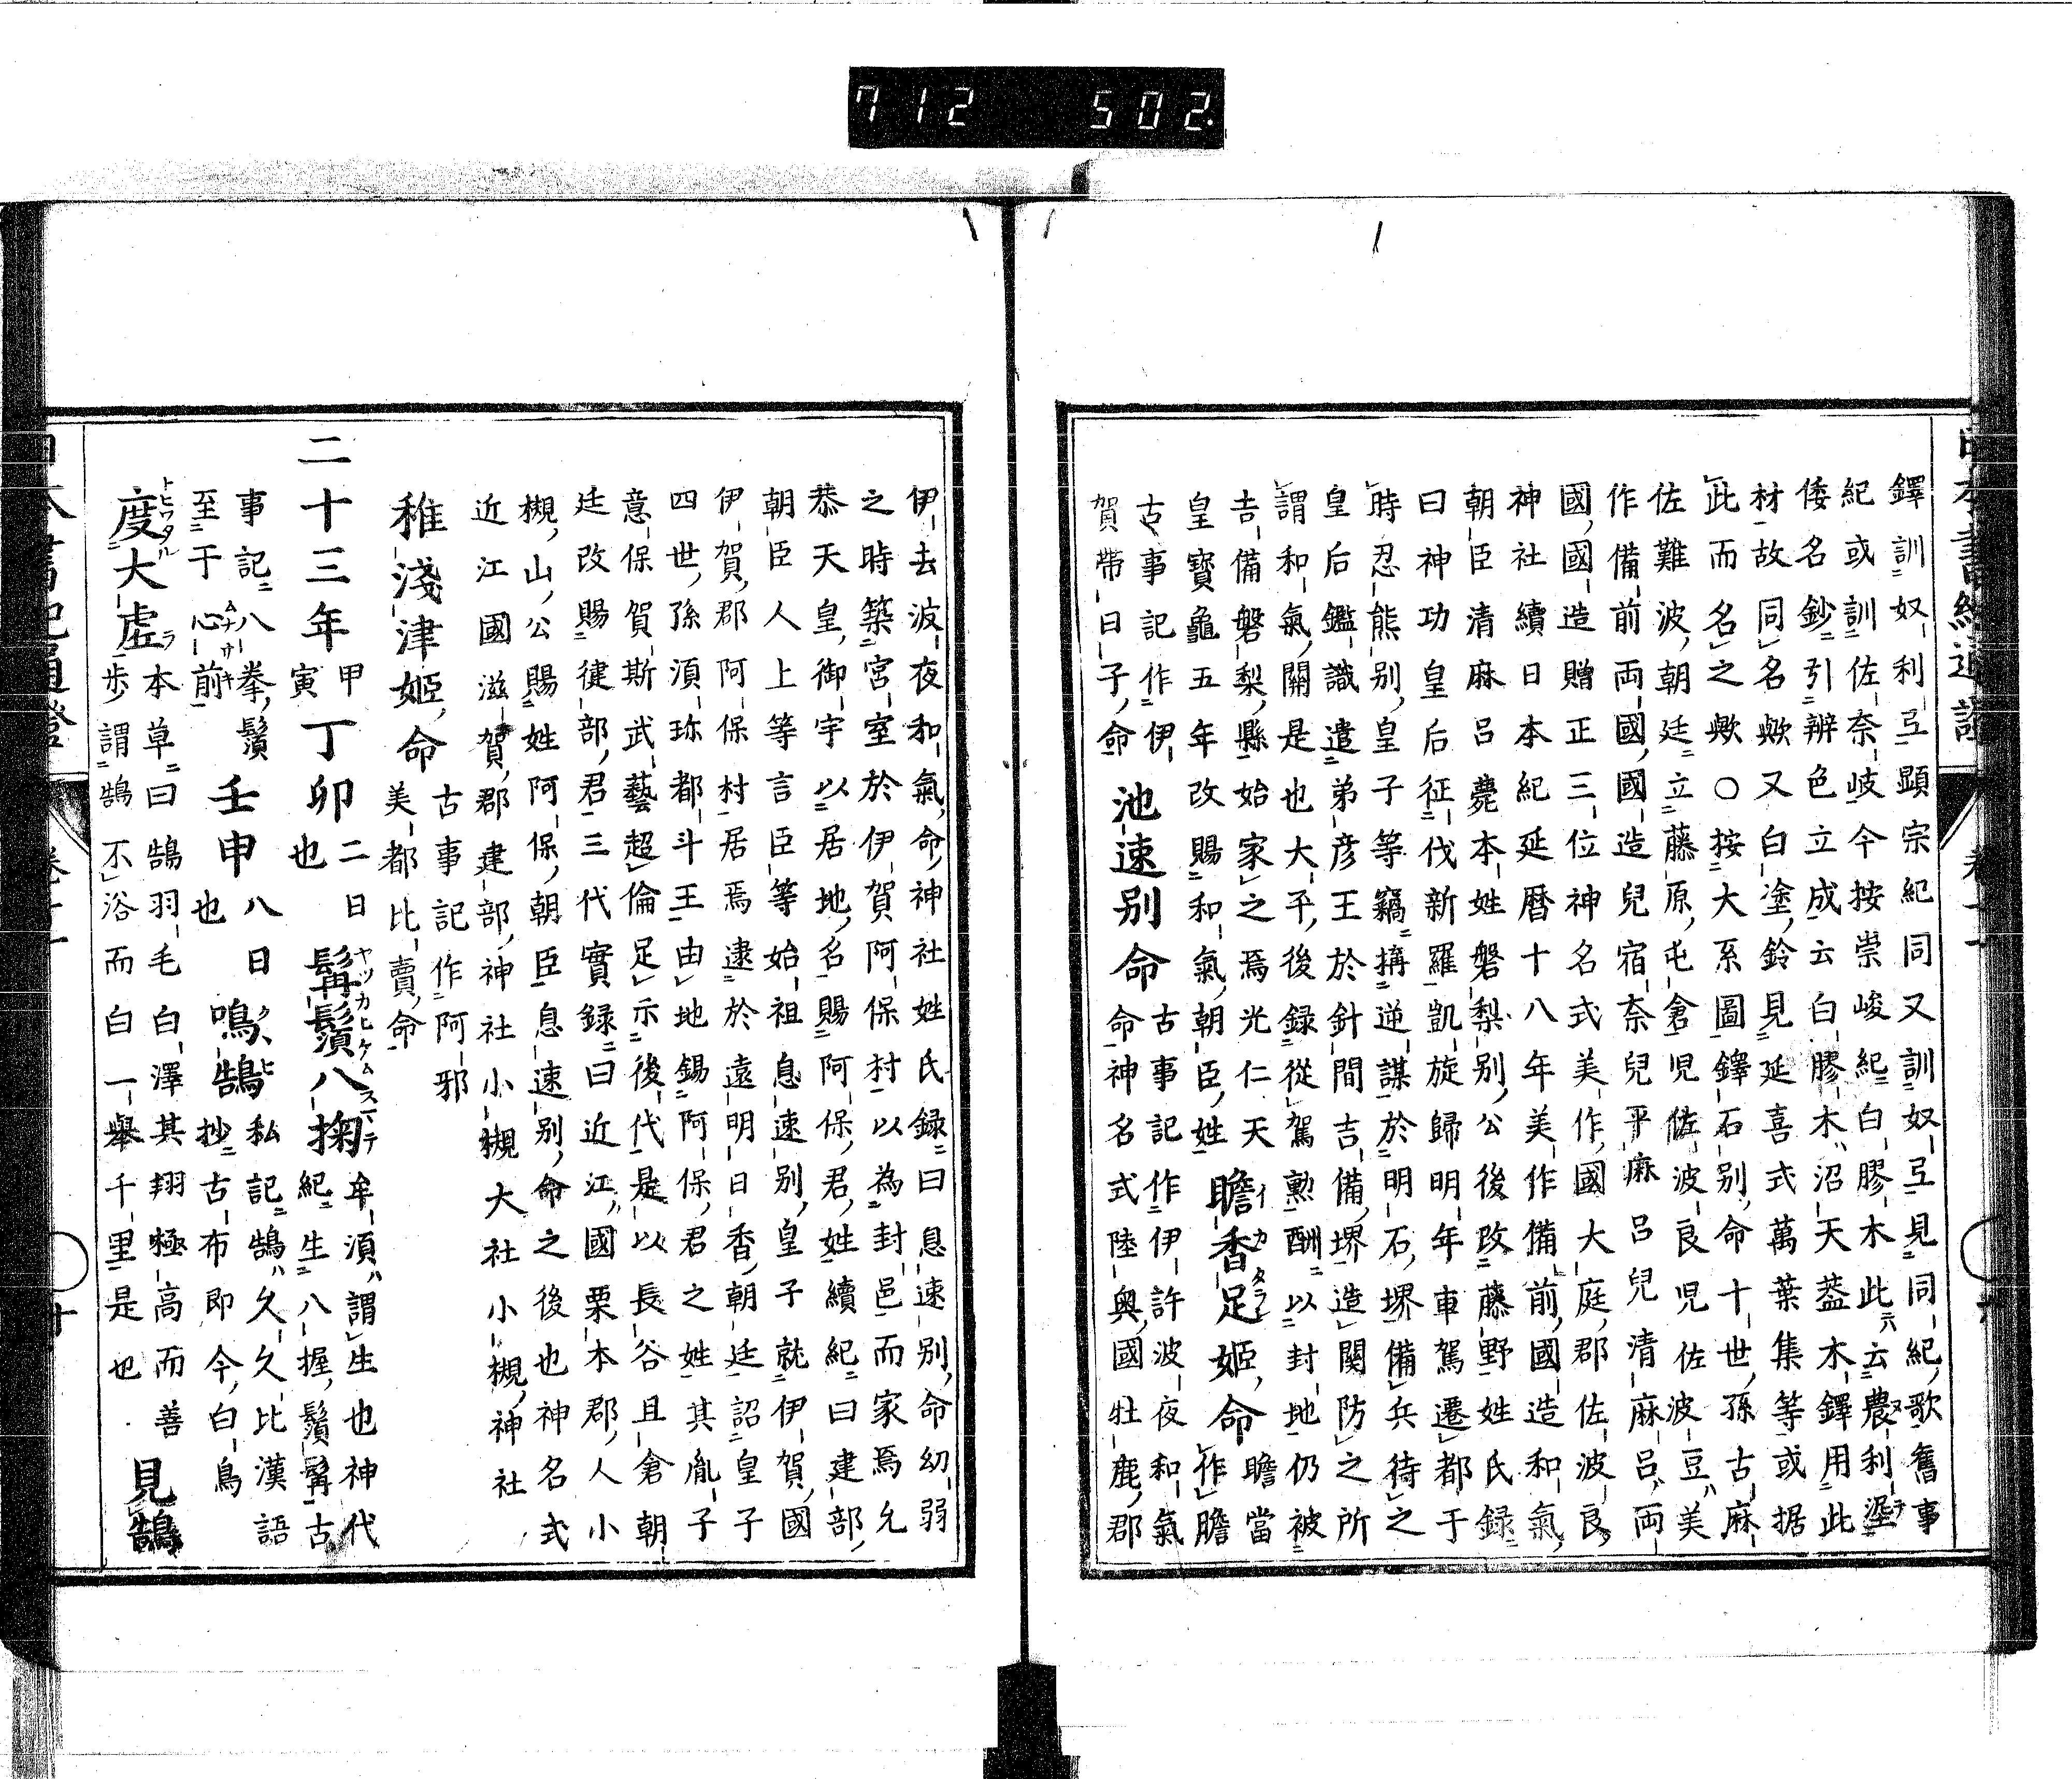 712 502.
鐸訓奴利弖顯宗紀同又訓奴弖見同紀歌舊事
紀或訓佐奈岐今按崇峻紀白膠木此云農利涅
倭名鈔引辨色立成云白膠木沼天葢木鐸用此
材故同名歟又白塗鈴見延喜式萬葉集等或据
此而名之歟○按大系圖鐸石別命十世孫古麻
佐難波朝廷立藤原屯倉児佐波良児佐波豆美
作備前両國國造兒宿奈兒平麻呂兒清麻呂両
國國造贈正三位神名式美作國大庭郡佐波良
神社續日本紀延暦十八年美作備前國造和氣
朝臣清麻呂薨本姓磐梨別公後改藤野姓氏録
曰神功皇后征伐新羅凱旋歸明年車駕還都于
時忍熊別皇子等竊搆逆謀於明石堺備兵待之
皇后鑑識遣弟彦王於針間吉備堺造関防之所
謂和氣關是也大平後録從駕勲酬以封地仍被
吉備磐梨縣始家之焉光仁天
皇寳龜五年改賜和氣朝臣姓
膽香足姫命
膽當
作膽
古事記作伊
賀帶日子命
池速別命
古事記作伊許波夜和氣
命神名式陸奥國牡鹿郡
伊去波夜和氣命神社姓氏録曰息速別命幼弱
之時築宮室於伊賀阿保村以為封邑而家焉允
恭天皇御宇以居地名賜阿保君姓續紀曰建部
朝臣人上等言臣等始祖息速別皇子就伊賀國
伊賀郡阿保村居焉逮於遠明日香朝廷詔皇子
四世孫湏珎都斗王由地錫阿保君之姓其胤子
意保賀斯武藝超倫足示後代是以長谷且倉朝
廷改賜健部君三代實録曰近江國栗本郡人小
槻山公賜姓阿保朝臣息速別命之後也神名式
近江國滋賀郡建部神社小槻大社小槻神社
稚淺津姫命
古事記作阿邪
美都比賣命
二十三年
甲
寅
丁卯
二日
也
髯鬚八掬
牟湏謂生也神代
紀生八握鬚髯古
事記八拳鬚
至于心前
壬申
八日
也
鳴鵠
私記鵠久久比漢語
抄古布即今白鳥
度大虚
本草曰鵠羽毛白澤其翔極高而善
歩謂鵠不浴而白一擧千里是也
見鵠